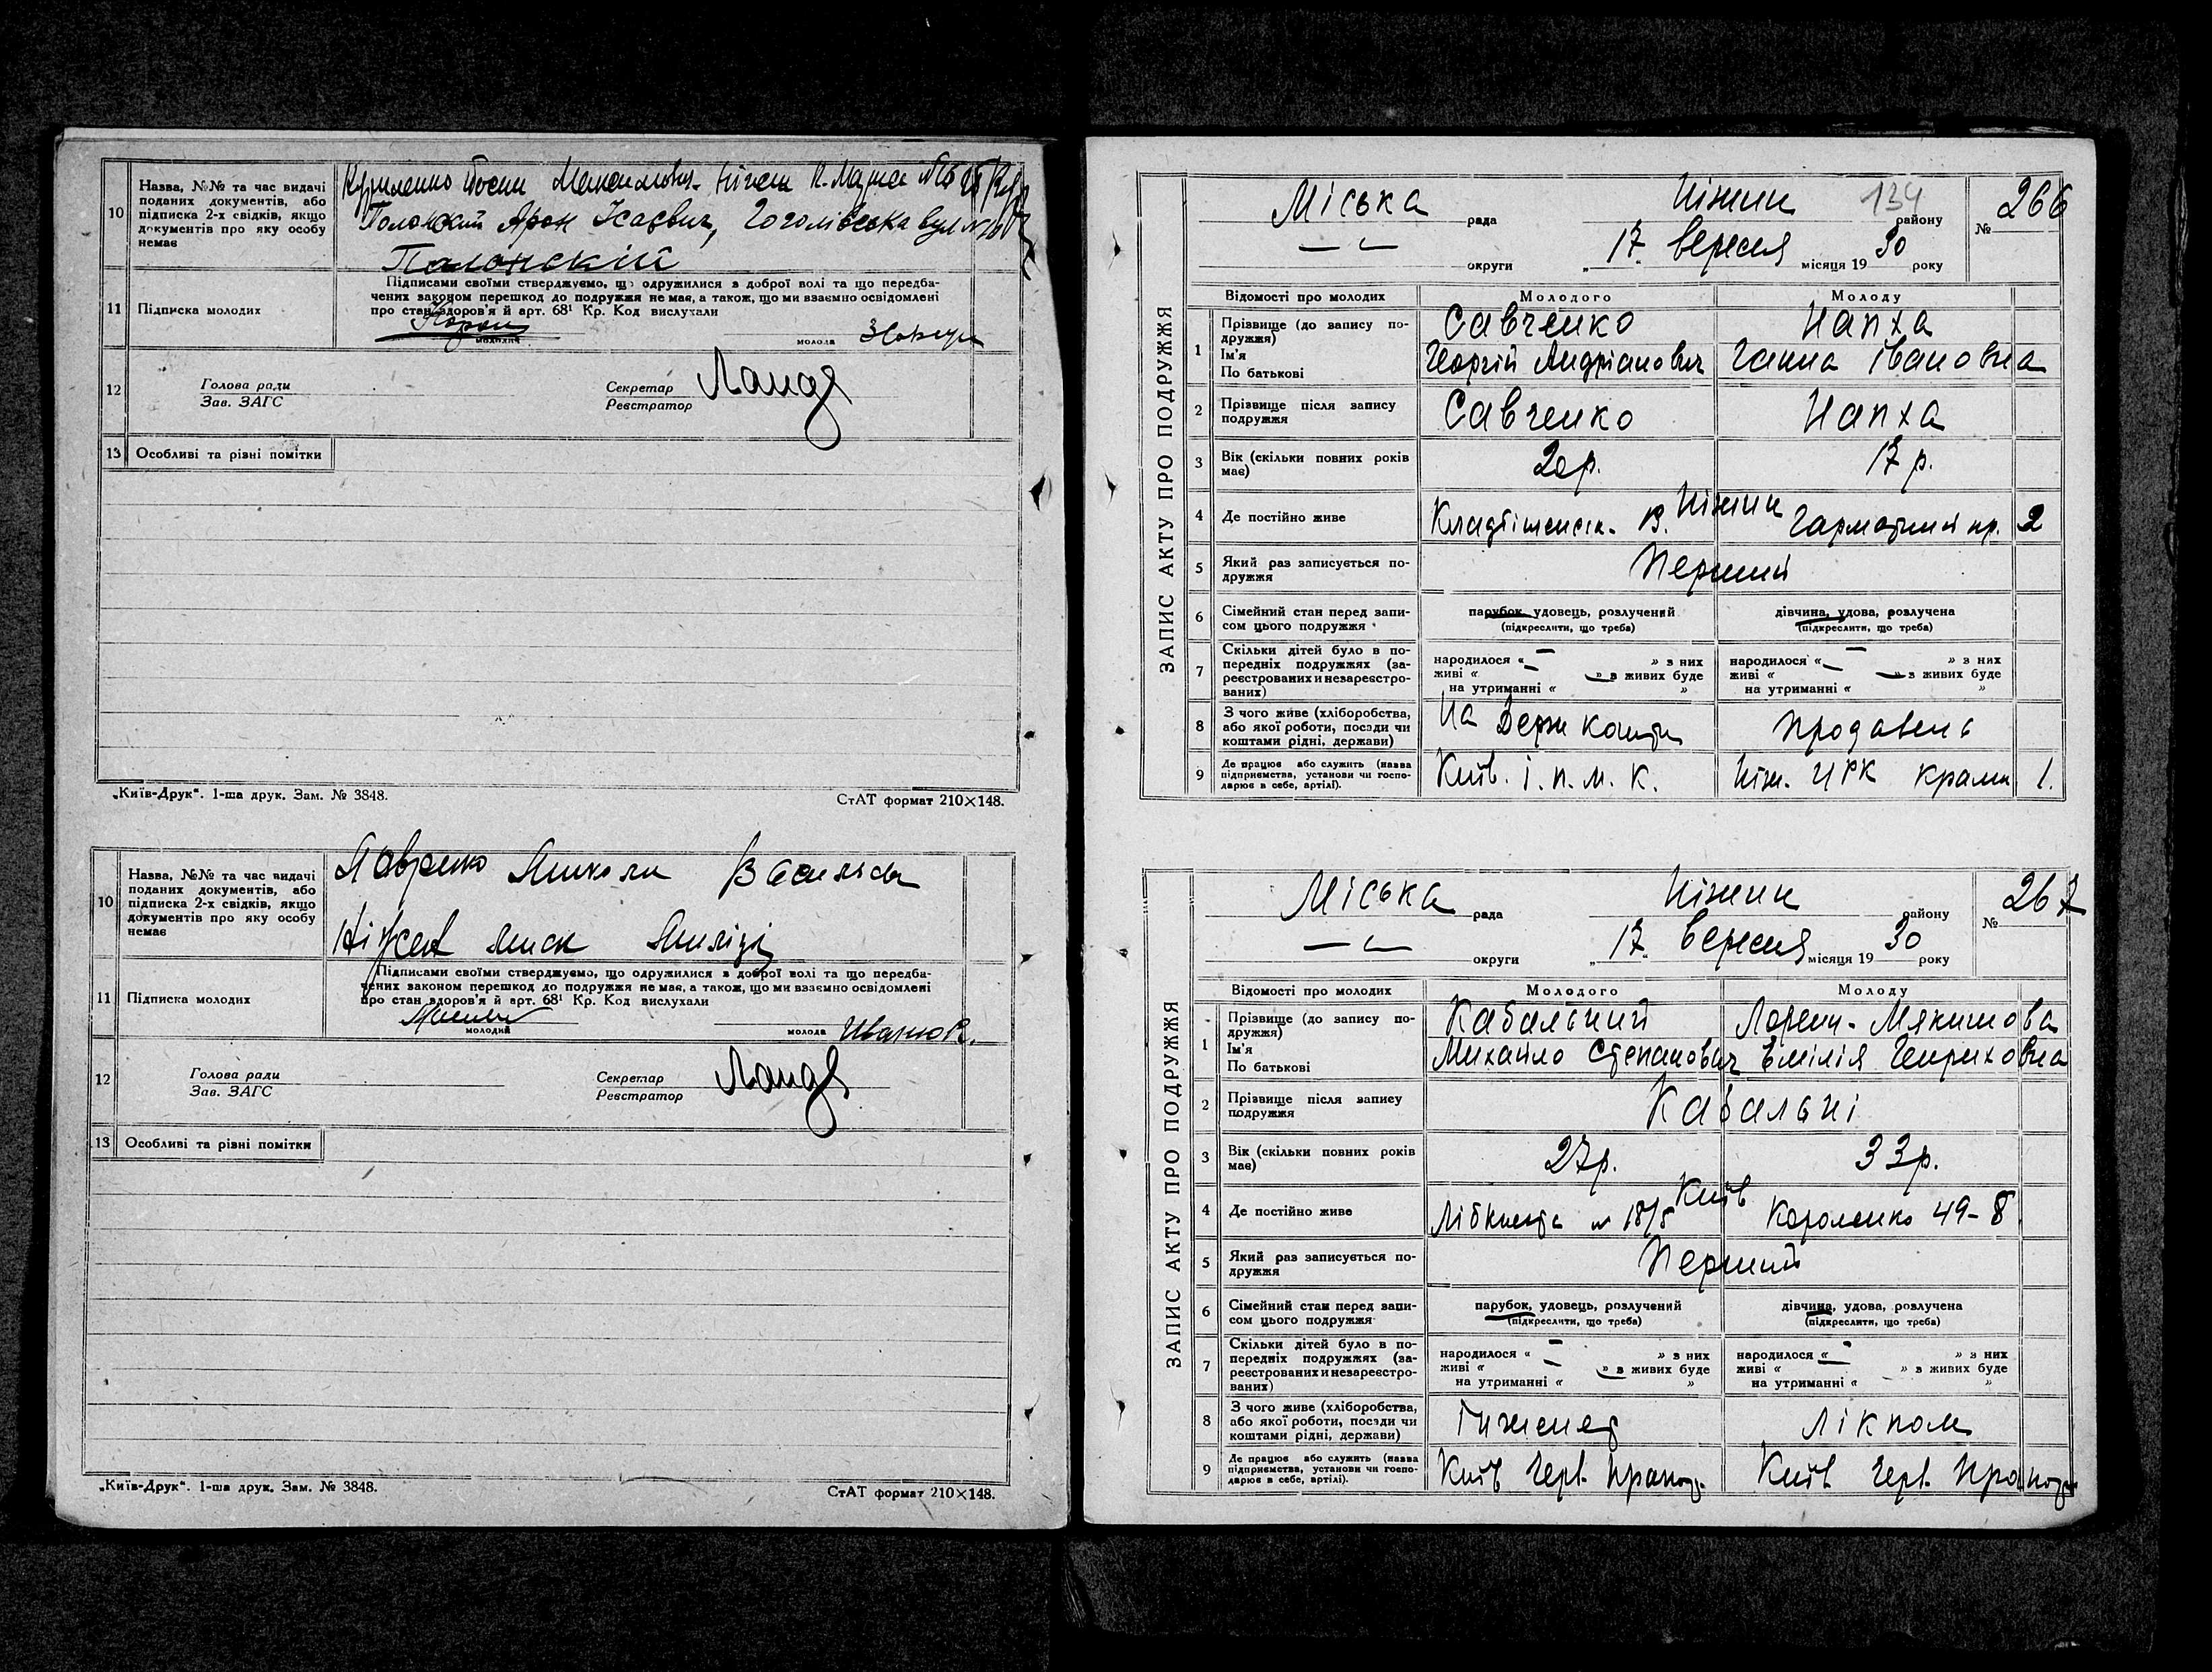 10
Назва, №№ та час видачі
поданих документів, або
підписка 2-х свідків, якщо
документів про яку особу
немає
Полонский Арон Ісаєвич, Гоголівська вул
Полонский
11
Підписка молодих
Підписами своїми стверджуємо, що одружилися з доброї волі та що передба-
чених законом перешкод до подружжя не має, а також, що ми взаємно освідомлені
про стан здоров'я й арт. 68¹ Кр. Код вислухали
молодий
молода
12
Голова ради
Зав. ЗАГС
Секретар
Реєстратор
Ланде
13
Особливі та різні помітки
„Київ-Друк“. 1-ша друк. Зам. № 3848.
СтАТ формат 210×148.
10
Назва, №№ та час видачі
поданих документів, або
підписка 2-х свідків, якщо
документів про яку особу
немає
11
Підписка молодих
Підписами своїми стверджуємо, що одружилися з доброї волі та що передба-
чених законом перешкод до подружжя не має, а також, що ми взаємно освідомлені
про стан здоров'я й арт. 68¹ Кр. Код вислухали
молодий
молода
12
Голова ради
Зав. ЗАГС
Секретар
Реєстратор
Ланде
13
Особливі та різні помітки
„Київ-Друк“. 1-ша друк. Зам. № 3848.
СтАТ формат 210×148.
ЗАПИС АКТУ ПРО ПОДРУЖЖЯ
Міська рада Ніжин району 134
№ 266
округи „17“ вересня місяця 1930 року
Відомості про молодих
Молодого
Молоду
1
Прізвище (до запису по-
дружжя)
Ім'я
По батькові
Савченко
Георгій Андріанович
Напха
Ганна Івановна
2
Прізвище після запису
подружжя
Савченко
Напха
3
Вік (скільки повних років
має)
20р.
17 р.
4
Де постійно живе
Ніжин
Гарматний пр. 2
5
Який раз записується по-
дружжя
Перший
6
Сімейний стан перед запи-
сом цього подружжя
парубок, удовець, розлучений
(підкреслити, що треба)
дівчина, удова, розлучена
(підкреслити, що треба)
7
Скільки дітей було в по-
передніх подружжях (за-
реєстрованих и незареєстро-
ваних)
народилося « – » з них
живі « – » з живих буде
на утриманні « »
народилося « – » з них
живі « – » з живих буде
на утриманні « »
8
З чого живе (хліборобства,
або якої роботи, посади чи
коштами рідні, держави)
На Держ кошти
продавець
9
Де працює або служить (назва
підприємства, установи чи госпо-
дарює в себе, артілі).
Київ. і. п. м. к.
Ніж. ЦРК крамн 1.
ЗАПИС АКТУ ПРО ПОДРУЖЖЯ
Міська рада Ніжин району
№ 267
округи „17“ вересня місяця 1930 року
Відомості про молодих
Молодого
Молоду
1
Прізвище (до запису по-
дружжя)
Ім'я
По батькові
Кабальний
Михайло Степанович
Лоренц-Мякишова
Емілія Генриховна
2
Прізвище після запису
подружжя
Кабальні
3
Вік (скільки повних років
має)
27р.
33р.
4
Де постійно живе
Київ
Лібкнехта № 18/5
Короленко 49-8
5
Який раз записується по-
дружжя
Перший
6
Сімейний стан перед запи-
сом цього подружжя
парубок, удовець, розлучений
(підкреслити, що треба)
дівчина, удова, розлучена
(підкреслити, що треба)
7
Скільки дітей було в по-
передніх подружжях (за-
реєстрованих и незареєстро-
ваних)
народилося « – » з них
живі « – » з живих буде
на утриманні « »
народилося « – » з них
живі « » з живих буде
на утриманні « »
8
З чого живе (хліборобства,
або якої роботи, посади чи
коштами рідні, держави)
Інженер
Лікпом
9
Де працює або служить (назва
підприємства, установи чи госпо-
дарює в себе, артілі).
Київ Черв. прапор.
Київ Черв. прапор